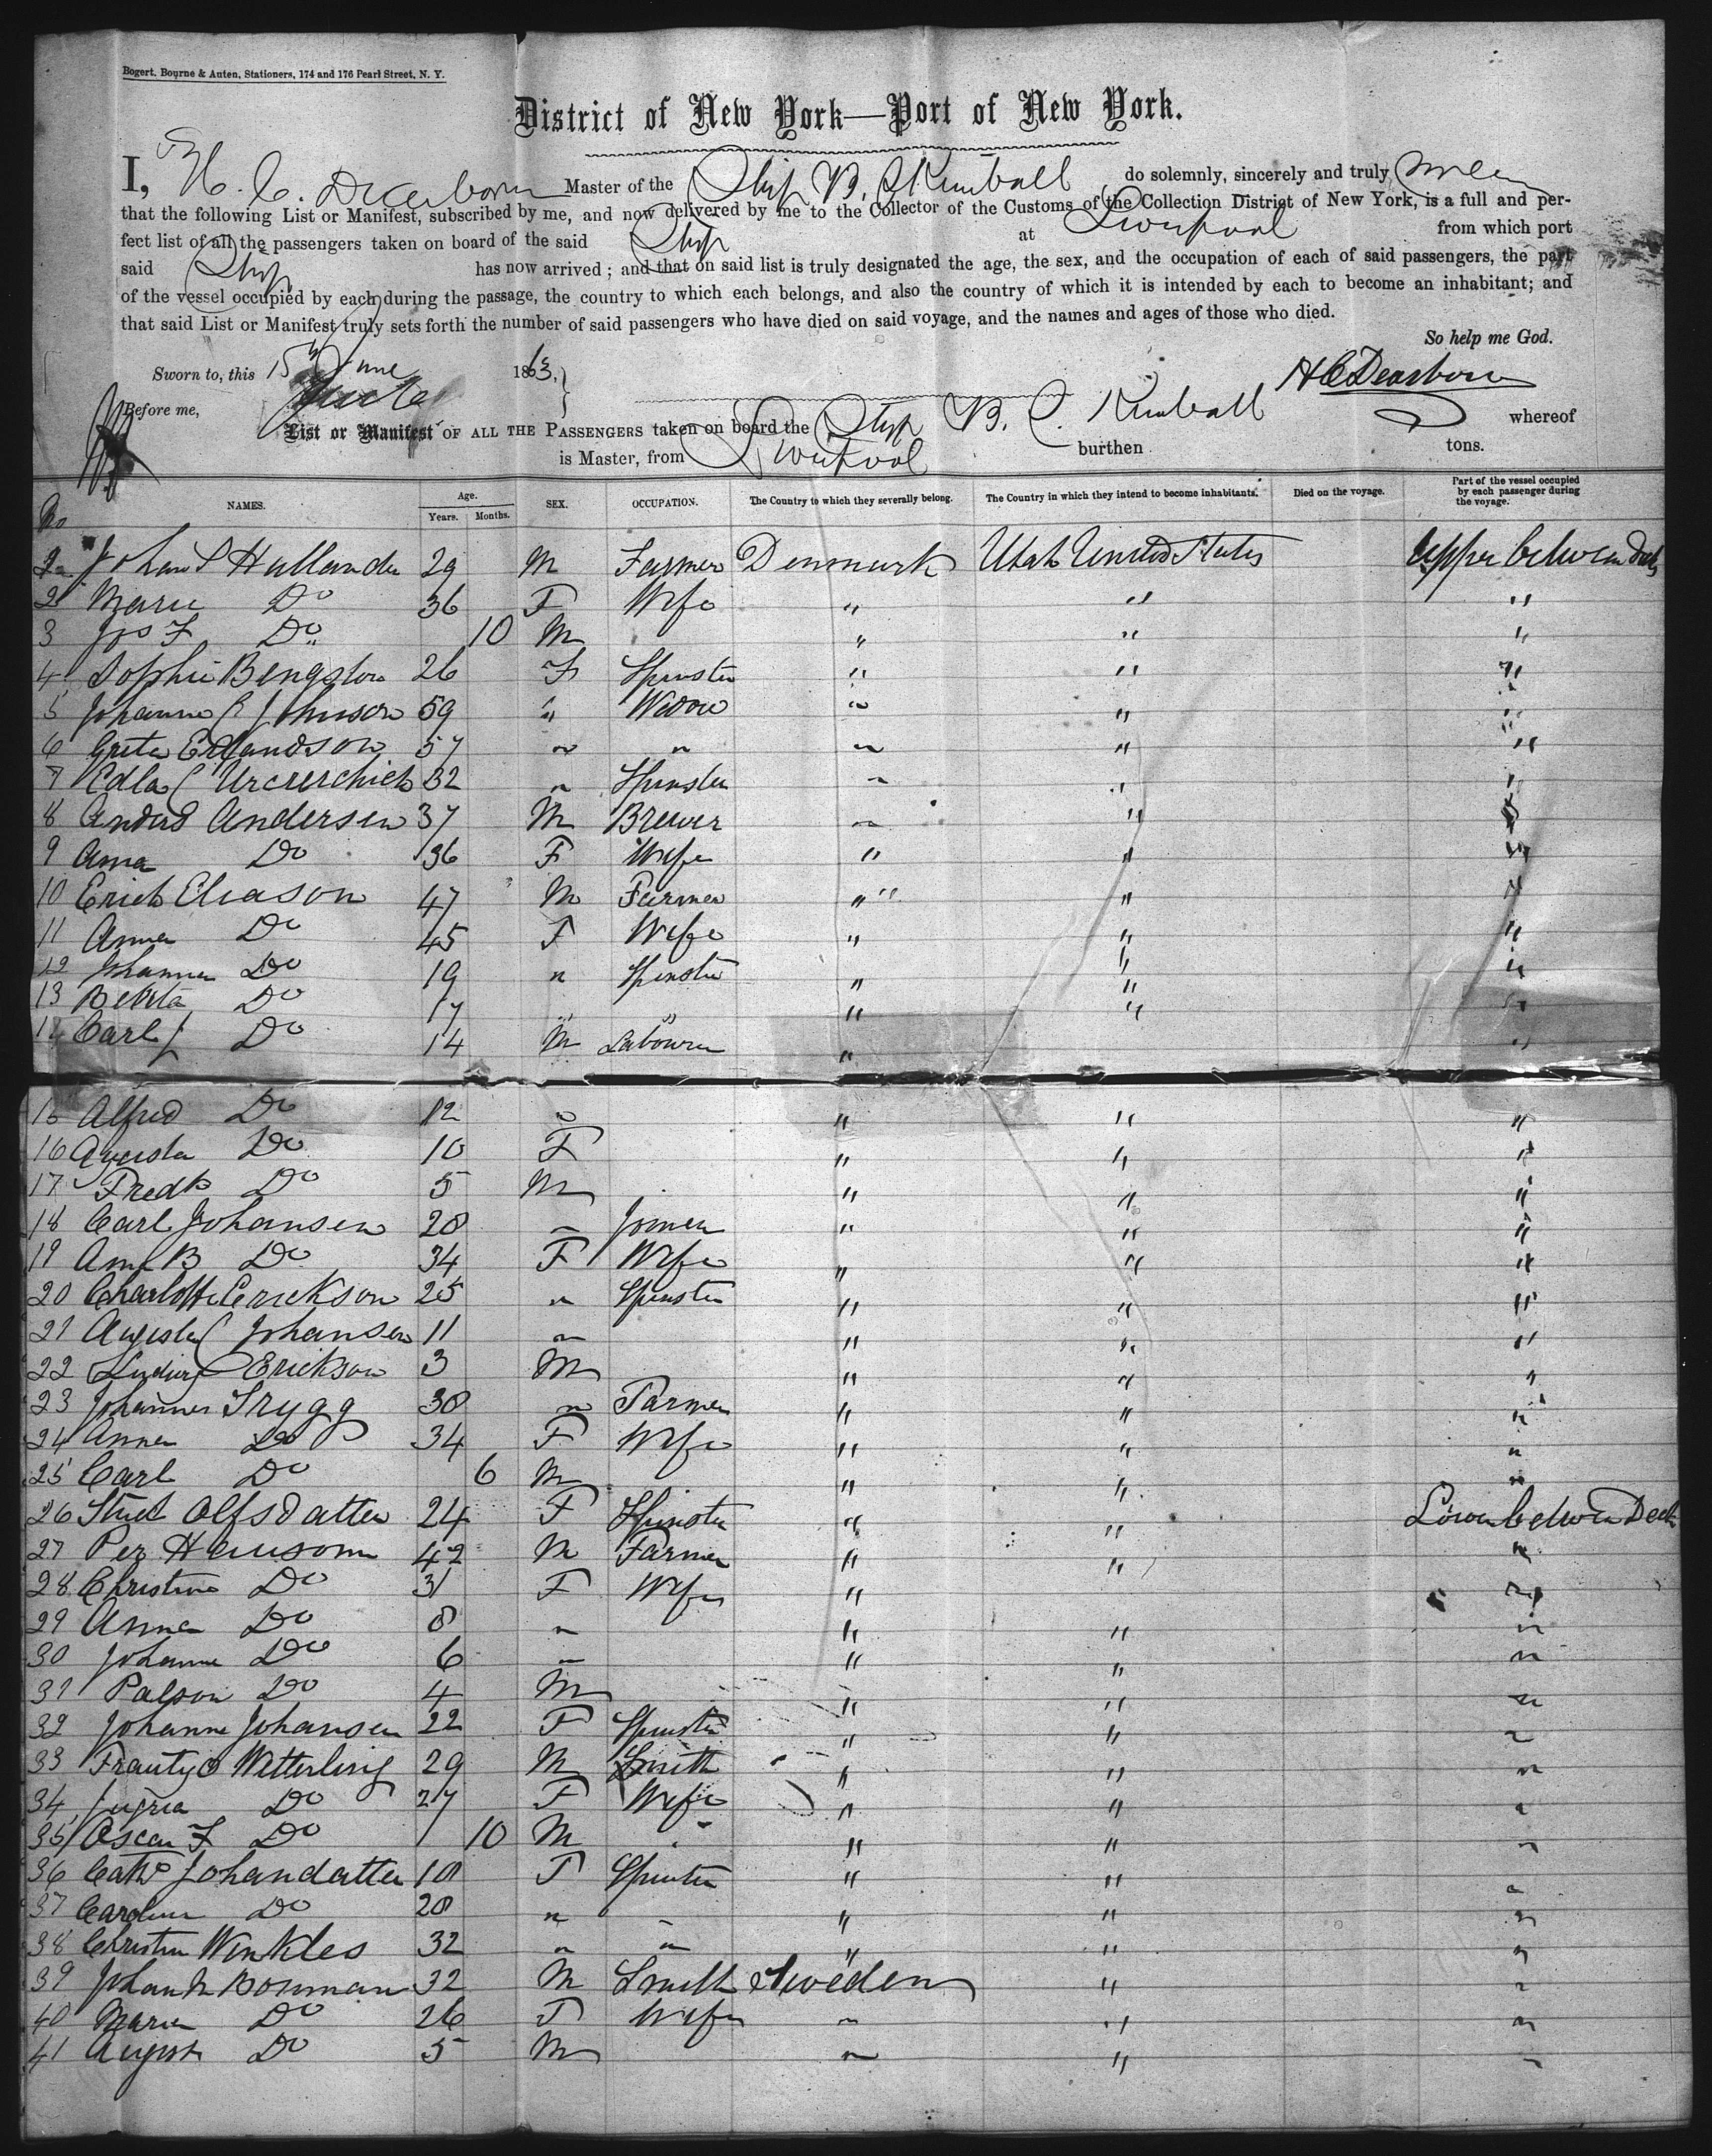 Bogert, Bourne & Auten, Stationers, 174 and 176 Pearl Street, N. Y.
District of New York—Port of New York.
I, H. C. Dearborn Master of the Ship B. C. Kimball do solemnly, sincerely and truly swear
that the following List or Manifest, subscribed by me, and now delivered by me to the Collector of the Customs of the Collection District of New York, is a full and per-
fect list of all the passengers taken on board of the said Ship at Liverpool from which port
said Ship has now arrived; and that on said list is truly designated the age, the sex, and the occupation of each of said passengers, the part
of the vessel occupied by each during the passage, the country to which each belongs, and also the country of which it is intended by each to become an inhabitant; and
that said List or Manifest truly sets forth the number of said passengers who have died on said voyage, and the names and ages of those who died.
So help me God.
Sworn to, this 15th June 1863. H C Dearborn
Before me,
List or Manifest OF ALL THE PASSENGERS taken on board the Ship B. C. Kimball whereof
is Master, from Liverpool burthen tons.
No NAMES. Age. Years. Months. SEX. OCCUPATION. The Country to which they severally belong. The Country in which they intend to become inhabitants. Died on the voyage. Part of the vessel occupied by each passenger during the voyage.
1 Johan S Hallander 29 M Farmer Denmark Utah United States Upper between Decks
2 Marie Do 36 F Wife " " "
3 Jos F Do 10 M " " "
4 Sophie Bengston 26 F Spinster " " "
5 Johanne C Johnson 59 " Widow " " "
6 Greta Erlandson 57 " " " " "
7 Edla C 32 " Spinster " " "
8 Anders Andersen 37 M Brewer " " "
9 Anna Do 36 F Wife " " "
10 Erich Eliason 47 M Farmer " " "
11 Anna Do 45 F Wife " " "
12 Johanna Do 19 " Spinster " " "
13 Do 17 " " " " "
14 Carl J Do 14 M Labourer " "
15 Alfred Do 12 " " " "
16 Augusta Do 10 F " " "
17 Fredk Do 5 M " " "
18 Carl Johansen 28 " Joiner " " "
19 Anna B Do 34 F Wife " " "
20 Charlotte Erickson 25 " Spinster " " "
21 Augusta C Johansen 11 " " " "
22 Ludwig Erickson 3 M " " "
23 Johannes Trygg 38 " Farmer " " "
24 Anna Do 34 F Wife " " "
25 Carl Do 6 M " " "
26 Olfsdatter 24 F Spinster " " Lower between Deck
27 Per Hansom 42 M Farmer " " "
28 Christine Do 31 F Wife " "
29 Anna Do 8 " " " "
30 Johanne Do 6 " " " "
31 Do 4 M " " "
32 Johanne Johansen 22 F Spinster " " "
33 Wetterling 29 M Smith " " "
34 Do 27 F Wife " " "
35 Oscar F Do 10 M " " "
36 Cathe Johandatter 18 F Spinster " " "
37 Caroline Do 28 " " " " "
38 Christin Winkles 32 " " " " "
39 Johan N Bonman 32 M Smith Sweden " "
40 Maria Do 26 F Wife " " "
41 August Do 5 M " " "